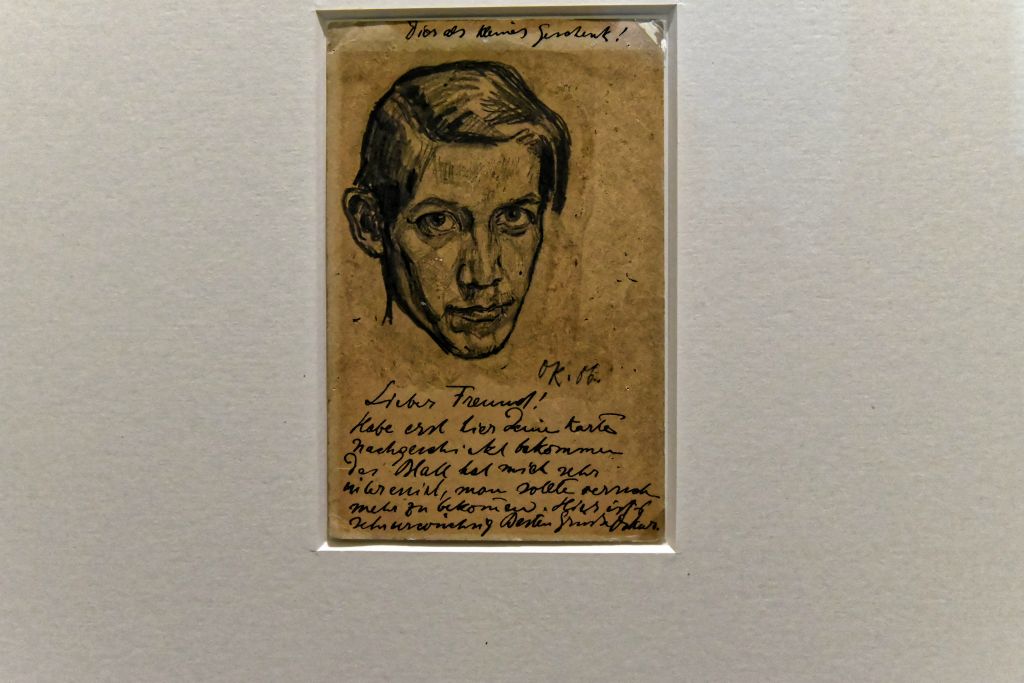 Dies als kleines Geschenk!
OK. 06
Lieber Freund!
Habe erst hier Deine Karte
nachgeschickt bekommen
Das Blatt hat mich sehr
interessirt, man sollte versuch
mehr zu bekommen. Hier ist es
sehr urwüchsig Besten Gruß Oskar